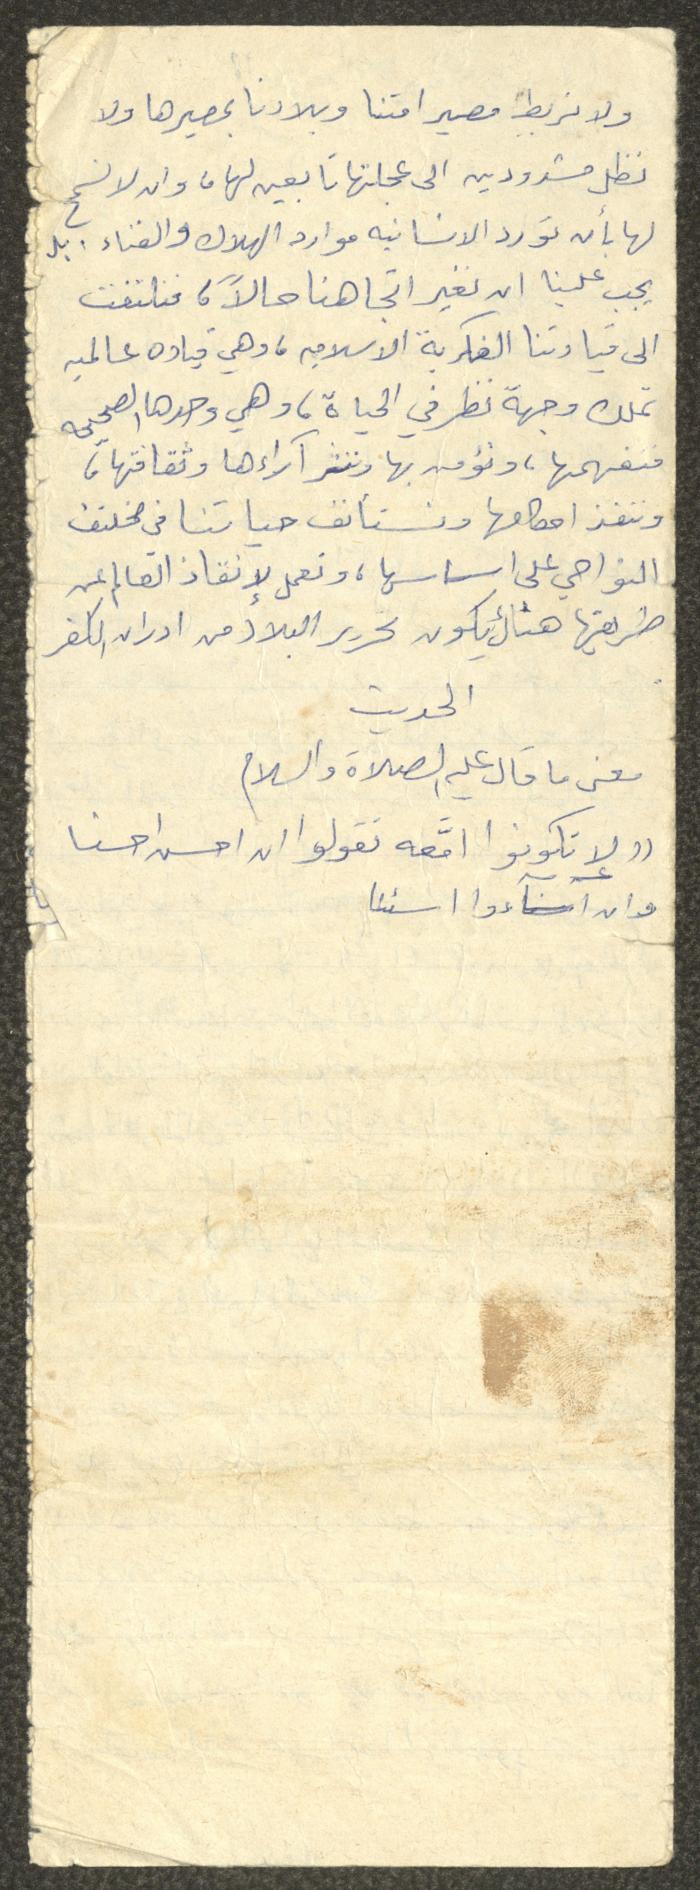 ولا نربط مصير امتنا وبلادنا بمصيرها ولا
نظل مشدودين الى عجلتها تابعين لها، وان لا نسمح
لها بأن تورد الانسانيه موارد الهلاك والفناء. بل
يجب علينا ان نغير اتجاهنا حالاً، فنلتفت
الى قيادتنا الفكرية الاسلاميه، وهي قياده عالميه
تملك وجهة نظر في الحياة، وهي وحدها الصحيحه
فنفهمها، ونؤمن بها وننشر آراءها وثقافتها،
وننفذ احكامها ونستأنف حياتنا في مختلف
النواحي على اساسها، ونعمل لإنقاذ العالم عن
طريقها هنالك يكون تحرير البلاد من ادران الكفر
الحديث
معنى ما قال عليه الصلاة والسلام
"لا تكونوا امَّعه تقولوا ان احسن احسنا
وان اسآءوا اسئنا